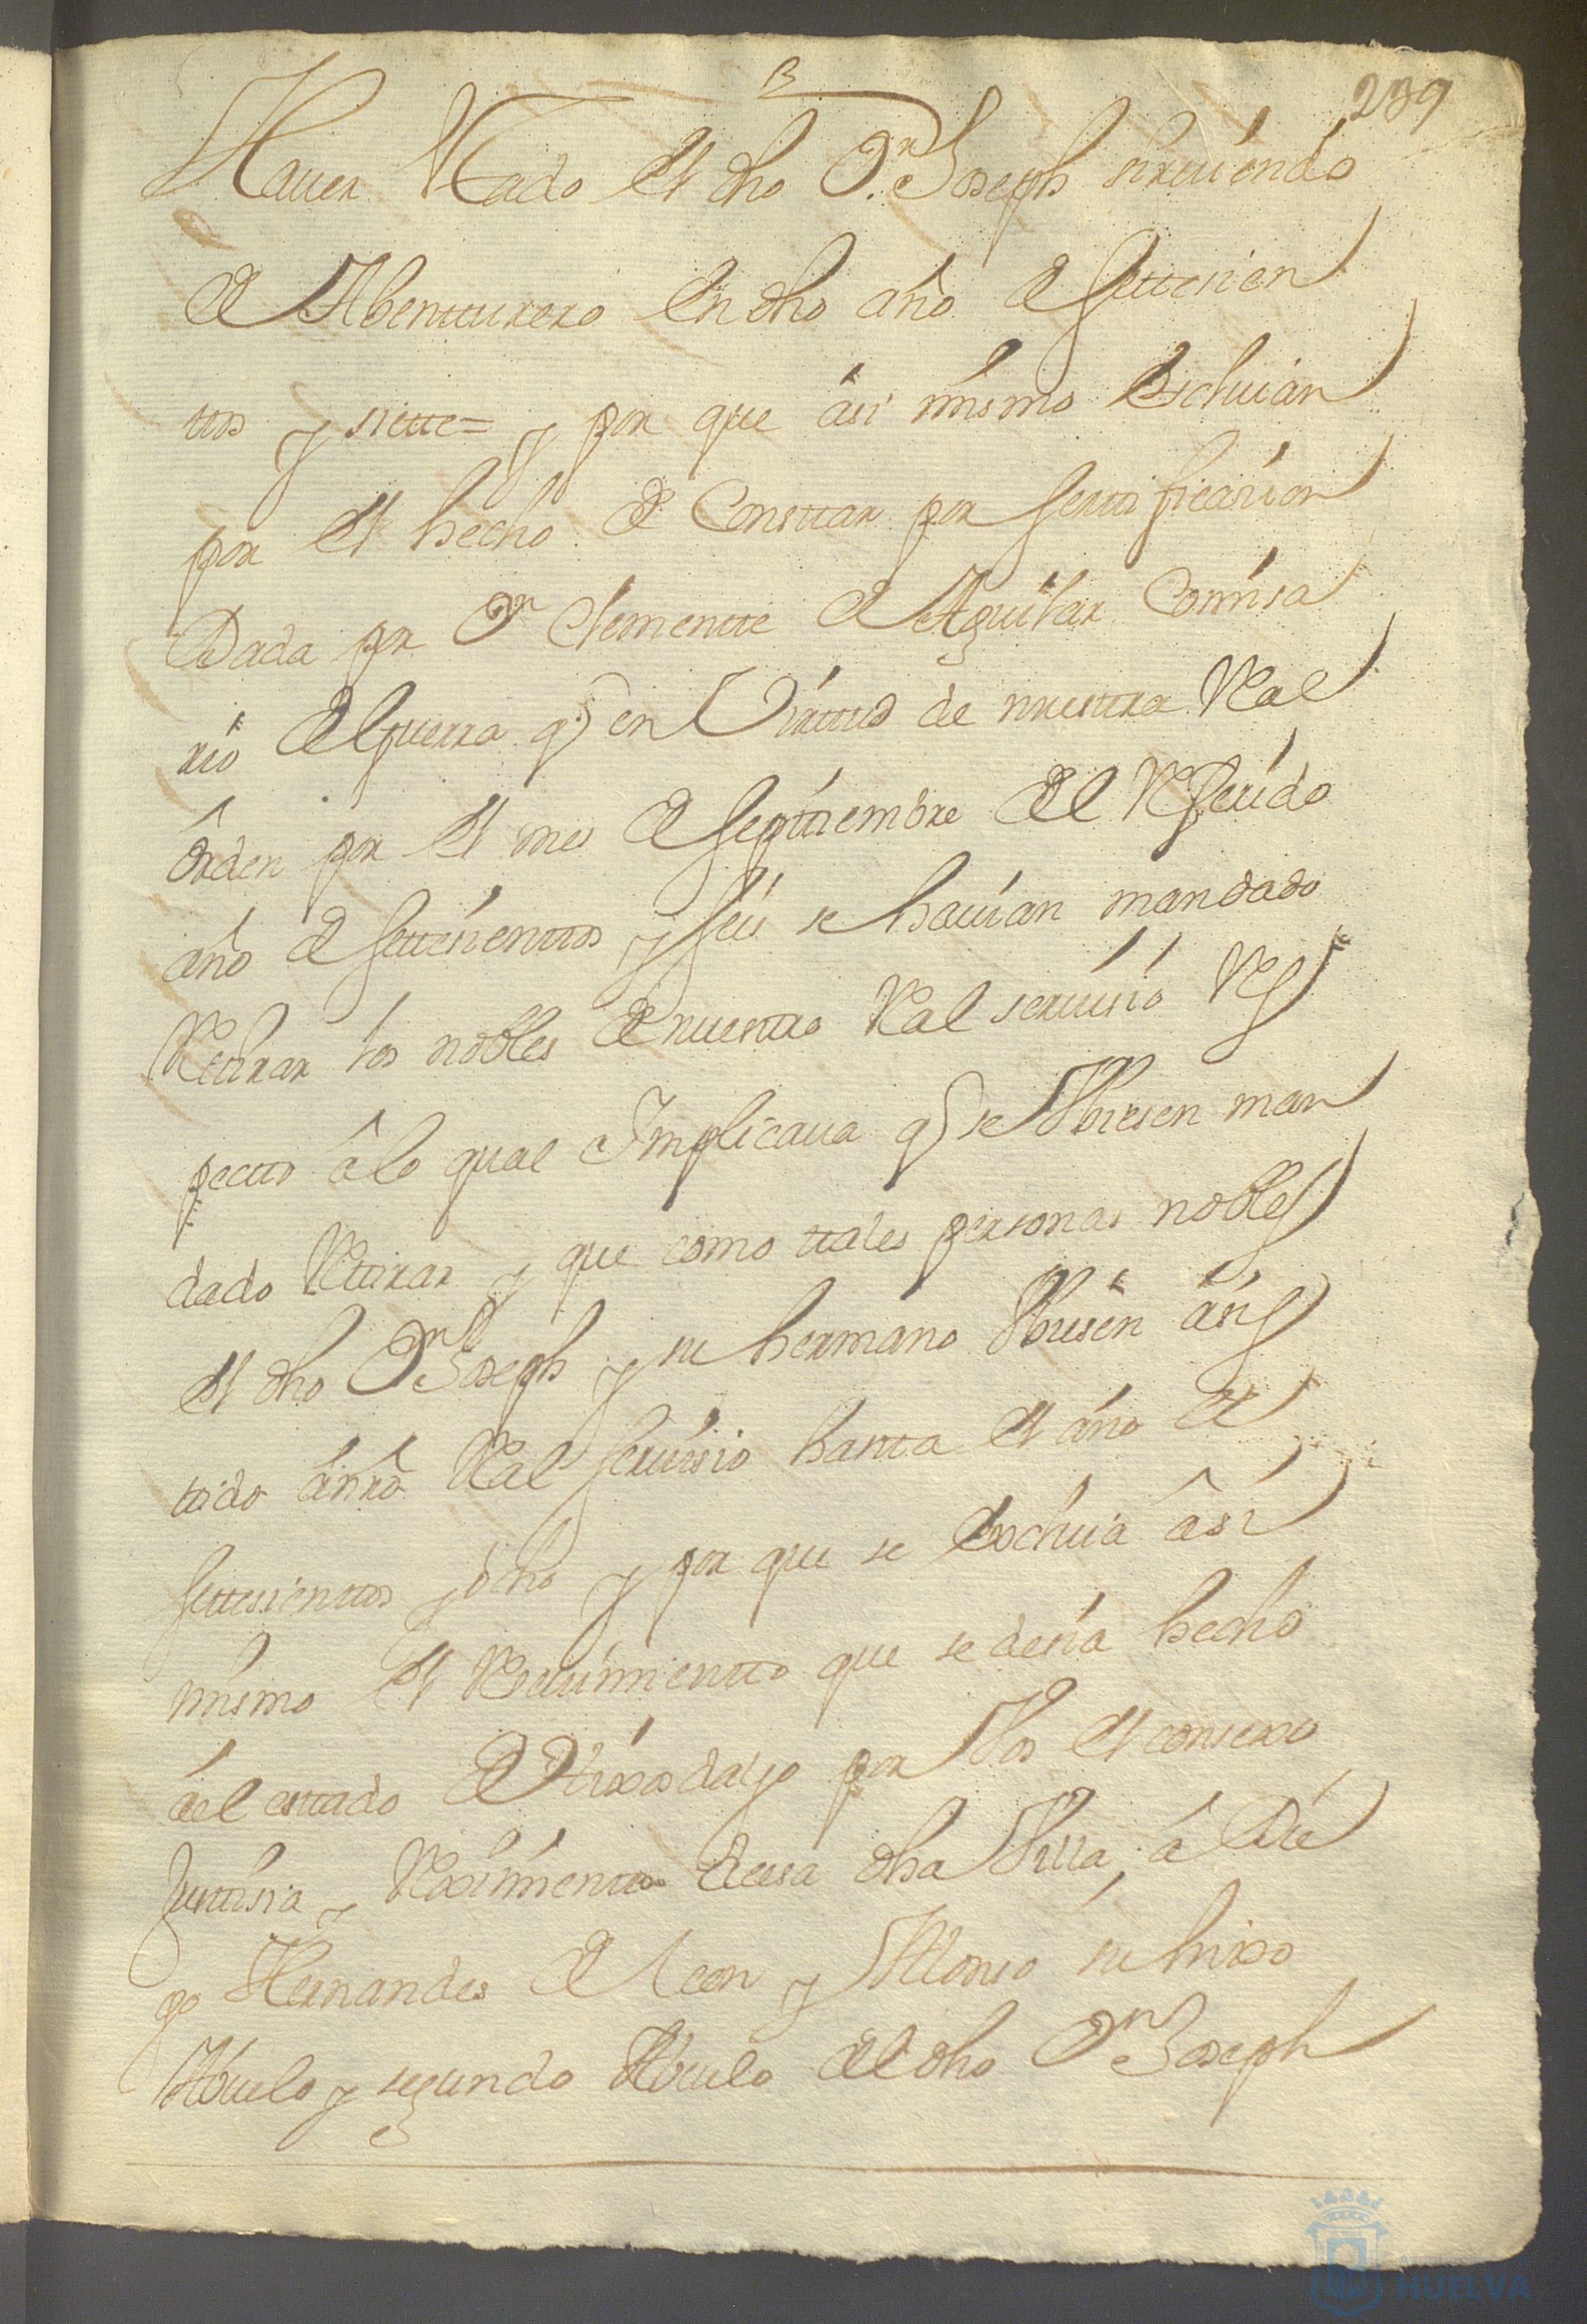 B
239
Hauer Estado el dho Dn Joseph siruiendo
de Abentturero en dho año de settesien
ttos y siette= y por que asi mismo Escluian
por el hecho de Consttar por serttificasion
Dada por Dn Clementte de Aguilar Comisa
rio de guerra q en Virttud de nuestra Real
orden por el mes de septtiembre del Referido
año de settesienttos y seis se hauian mandado
Rettirar los nobles de nuestro Real seruisio Res
pectto â lo qual Implicaua q se Vbiesen man
dado Rettirar y que como ttales personas nobles
el dho Dn Joseph y su hermano Vbiesen asis
tido a nro Real seruisio hasta el año de
settesienttos y ocho y por que se Excluia âsi
mismo el Reciuimientto que se desia hecho
del esttado de Hixosdalgo por Vos el consexo
Justtisia y Reximientto de esa dha Villa, â Die
go Hernandes de Leon y Alonso su hixo
Abuelo y segundo Abuelo del dho Dn Joseph
HUELVA